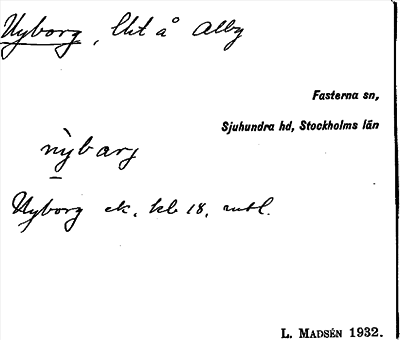 Nyborg, lht å Alby
Fasterna sn,
Sjuhundra hd, Stockholms län
nỳbarj
Nyborg ek. kb 18, mtl.
L. MADSÉN 1932.